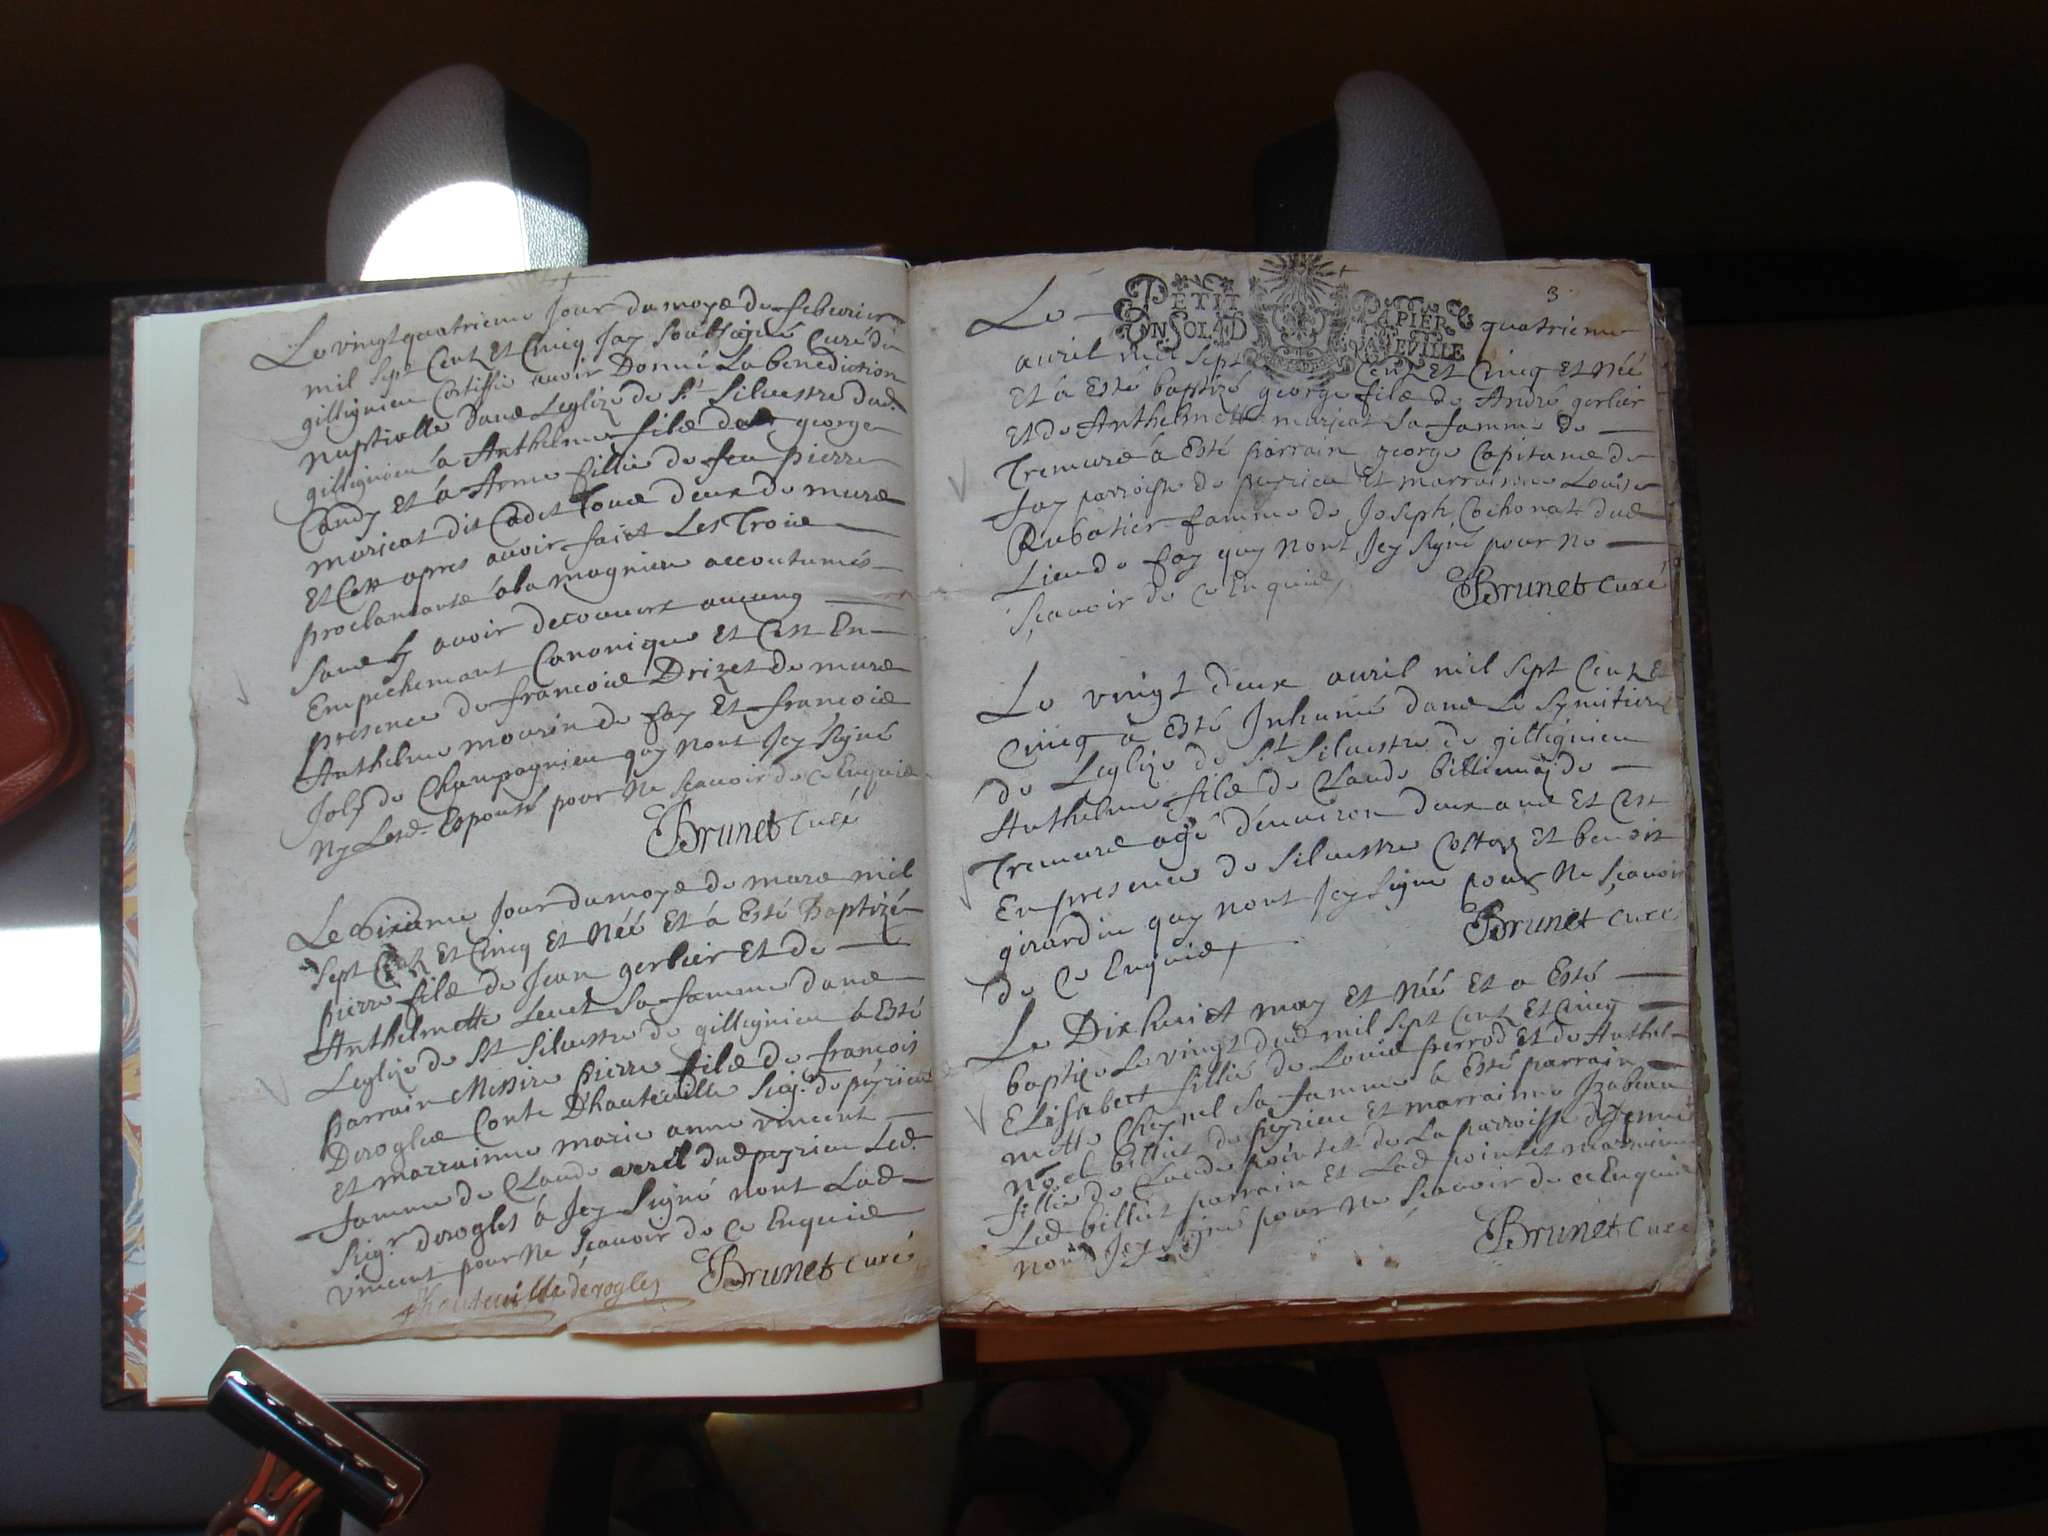 Le vingt quatrieme Jour du moys de febvrier
mil sept Centz et Cincq Jay Soubsigné Curé de
gillignieu Certiffie avoir Donné La benediction
nuptialle dans Leglize de St Silvestre dud.
gillignieu à Anthelme filz de george
Candy et à Anne fillie de feu pierre
muricat dit Cadet tous deux de murs
Et Cett apres avoir faict Les Trois
proclamaõns à la magniere accoutumés
Sans y avoir decouvert aucung
Empechemant Canonique Et Cest En
presence de francois Drizet de murs
Anthelme mourin de fay Et francois
Joly de Champagnieu quy nont Jcy signé
Ny Lesd. Espousé pour Ne Scavoir de Ce Enquis
Brunet Curé
Le Sixieme Jour du moys de mars mil
Sept Centz Et Cincq Et Néé Et à Esté Baptizé
pierre filz de Jean gerlier Et de
Anthelmette Levet Sa famme dans
Leglize de St Silvestre de gillignieu à Esté
parrain Messire pierre filz de francois
Derogles Conte D'hauteville Seigr. de peyrieu
Et marrainne marie anne vincent
famme de Claude verel dud peyrieu Led.
Seigr. derogles à Jcy Signé nont Lad
vincent pour Ne Scavoir de Ce Enquis
Brunet Curé
hauteville derogles
3
PETIT PAPIER
UN SOL 4 D
Le quatrieme
avril mil sept Centz Et Cincq Et Néé
Et à Esté baptizé george filz de André gerlier
Et de Anthelmette muricat Sa famme de
Tremurs à Esté parrain george Capitame de
fay parroisse de peyrieu Et marrainne Louise
Rubatier famme de Joseph Cochonat dud
Lieu de fay quy nont Jcy signé pour ne
Scavoir de Ce Enquis
Brunet Curé
Le vingt deux avril mil sept Centz Et
Cincq a Esté Jnhumé dans Le Symitiere
de Leglize de St Silvestre de gillignieu
Anthelme filz de Claude billiemaz de
Tremurs agé d'environ deux ans Et Cest
En presence de Silvestre Cottaz Et benoit
girardin quy nont Jcy signé pour Ne Scavoir
de Ce Enquis
Brunet Curé
Le Dixhuict may Et Néé Et a Esté
baptizé Le vingt dud mil sept Centz Et Cincq
Elisabett fillie de Louis perrod Et de Anthel
mette Cheynel Sa famme à Esté parrain
Noel billiet de peyrieu Et marrainne Jzabeau
fillie de Claude pointet de La parroisse
Led billiet parrain Et Lad pointet marrainne
nont Jcy signé pour Ne Scavoir de Ce Enquis
Brunet Curé